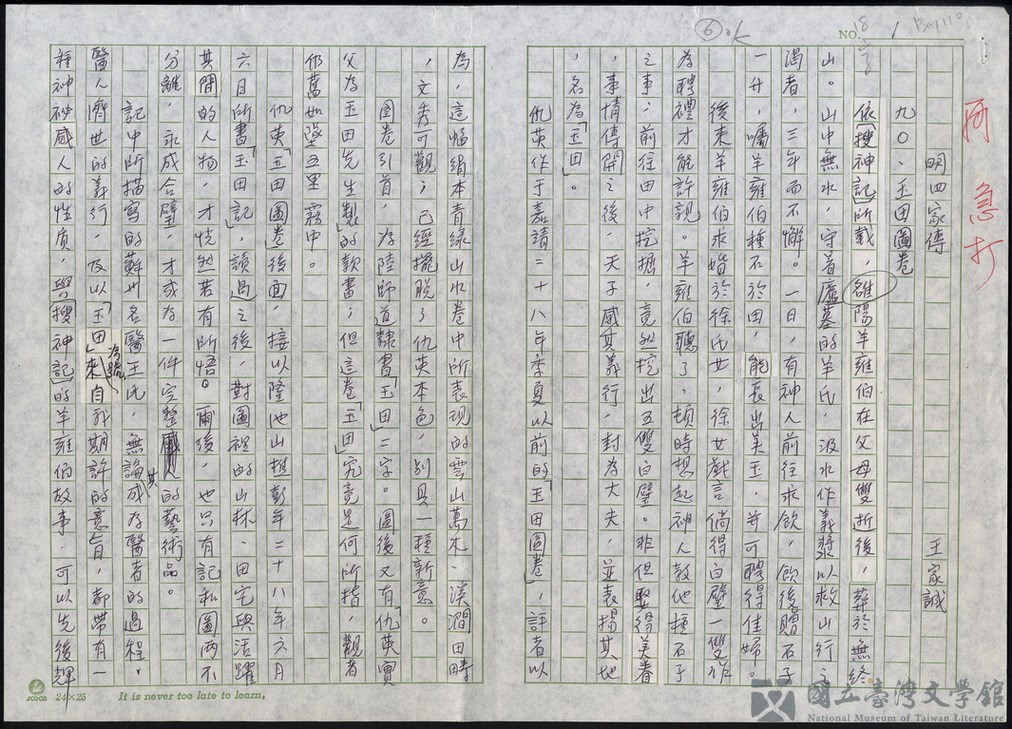 ⑥ ok
NO. 18 / 1
再 急打
明四家傳 王家誠
九〇、玉田圖卷
依「搜神記」所載,雒陽羊雍伯在父母雙逝後,葬於無終
山。山中無水,守著廬墓的羊氏,汲水作義漿以救山行之
渴者,三年而不懈。一日,有神人前往求飲,飲後贈石子
一升,囑羊雍伯種石於田,能長出美玉,並可聘得佳婦。
後來羊雍伯求婚於徐氏女,徐女戲言倘得白璧一雙作
為聘禮才能許親。羊雍伯聽了,頓時想起神人教他種石子
之事;前往田中挖掘,竟然挖出五雙白璧。非但娶得美眷
,事情傳開之後,天子感其義行,封為大夫,並表揚其地
,名為「玉田」。
仇英作于嘉靖二十八年季夏以前的「玉田圖卷」,評者以
為,這幅絹本青綠山水卷中所表現的雲山萬木、溪澗田疇
,文秀可觀;已經擺脫了仇英本色,別具一種新意。
圖卷引首,為陸師道隸書「玉田」二字。圖後又有「仇英實
父為玉田先生製」的款書;但這卷「玉田」究竟是何所指,觀者
仍舊如墜五里霧中。
仇英「玉田圖卷」後面,接以隆池山樵彭年二十八年六月
六日所書「玉田記」,讀過之後,對圖裡的山林、田宅與活躍
其間的人物,才恍然若有所悟。爾後,也只有記和圖兩不
分離,永成合璧,才成為一件完整感人的藝術品。
記中所描寫的蘇州名醫王氏,無論其成為醫者的過程,
醫人濟世的義行,及以「玉田」為號,來自我期許的意旨,都帶有一
種神秘感人的性質,與「搜神記」的羊雍伯故事,可以先後輝
24×25 It is never too late to learn.
國立臺灣文學館
National Museum of Taiwan Literature